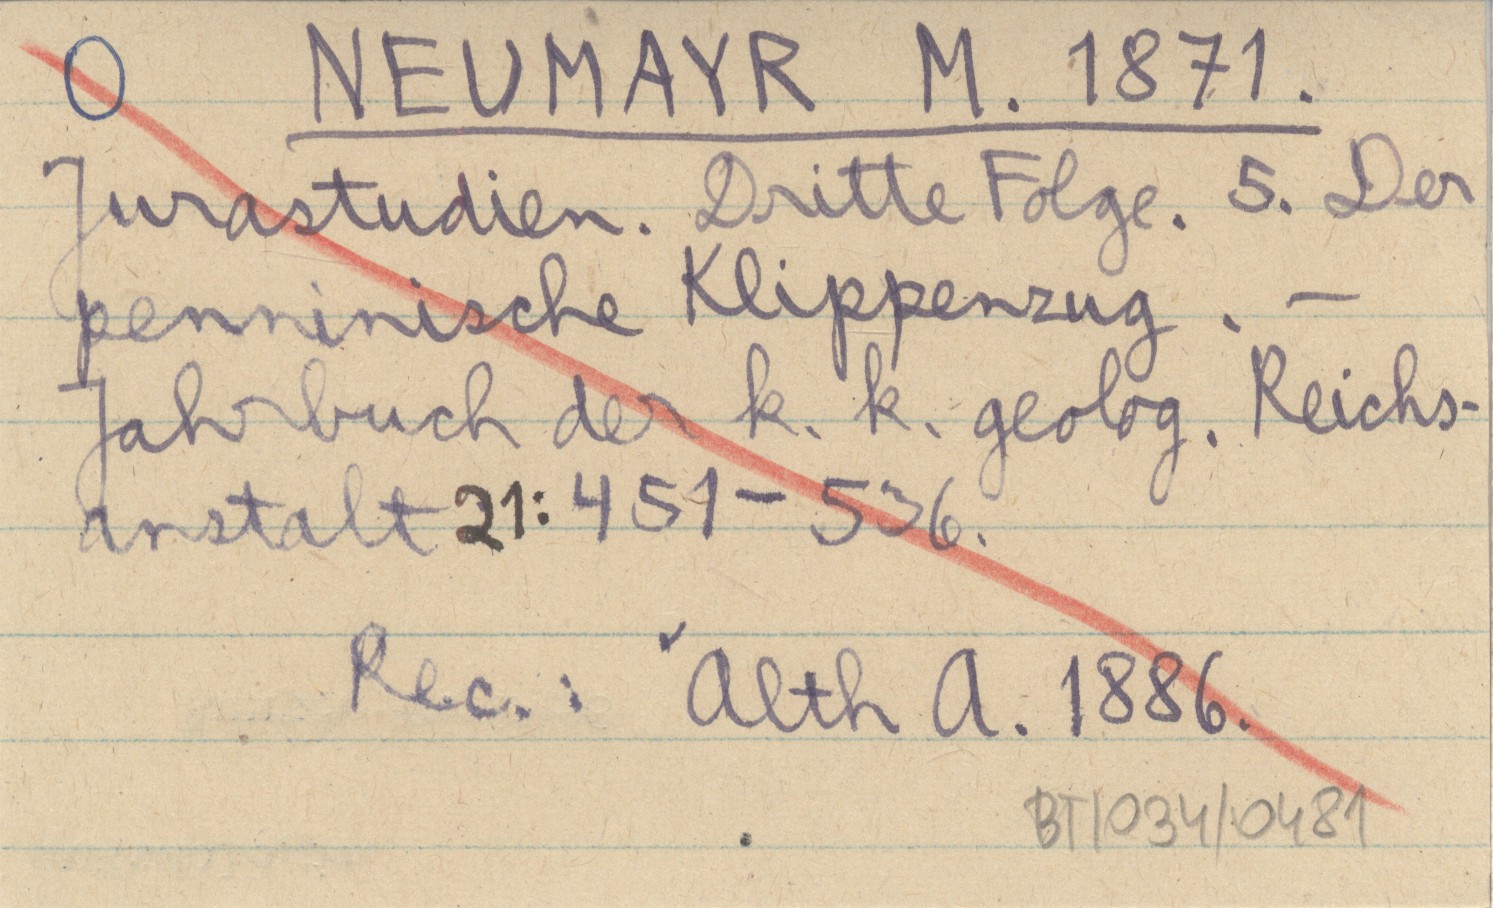 O NEUMAYR M. 1871.
Jurastudien. Dritte Folge. 5. Der
penninische Klippenzug. –
Jahrbuch der k. k. geolog. Reichs-
anstalt 21: 451 – 536.
Rec.: ✓Alth A. 1886.
BT/034/0481